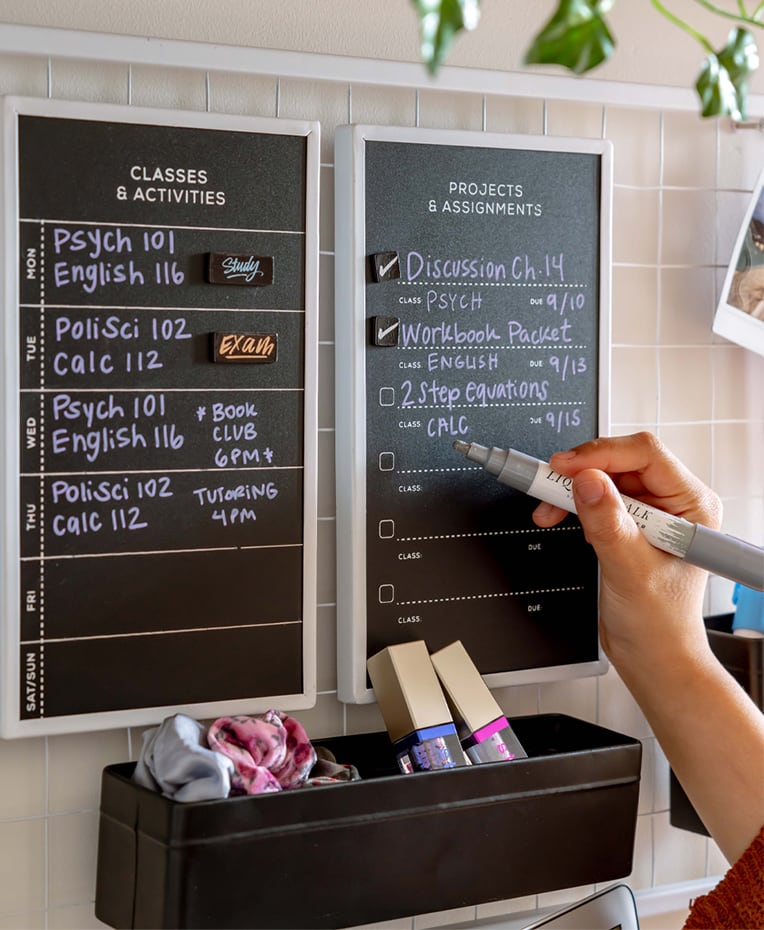 CLASSES
& ACTIVITIES
MON
Psych 101
English 116
Study
TUE
PoliSci 102
Calc 112
EXAM
WED
Psych 101
English 116
*BOOK
CLUB
6PM*
THU
PoliSci 102
Calc 112
TUTORING
4PM
FRI
SAT/SUN
PROJECTS
& ASSIGNMENTS
Discussion Ch. 14
CLASS: PSYCH DUE 9/10
Workbook Packet
CLASS: ENGLISH DUE: 9/13
2 Step equations
CLASS: CALC DUE: 9/15
CLASS:
CLASS: DUE:
CLASS: DUE: